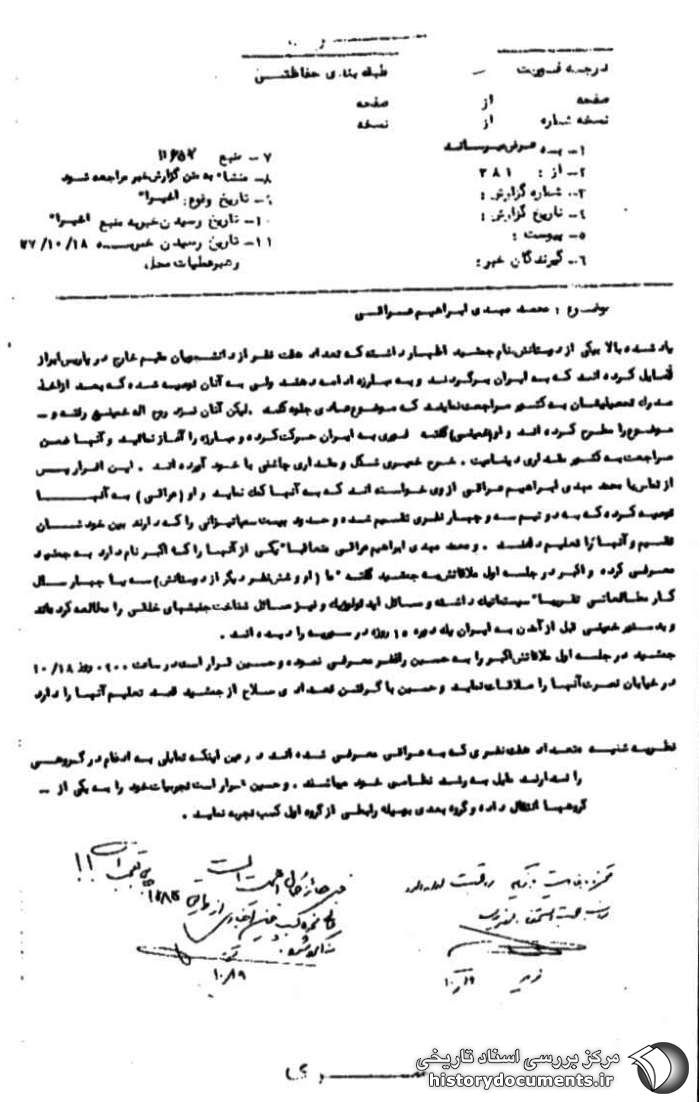 درجه فوریت –
طبقه بندی حفاظتی
صفحه از
صفحه
نسخه شماره از
نسخه
۱- به: عرض میرساند
۲- از : ۳۸۱
۳- شماره گزارش :
۴- تاریخ گزارش :
۵- پیوست :
۶- گیرندگان خبر:
۷- منبع ۱۱۶۵۷
۸- منشاء به متن گزارش خبر مراجعه شود
۹- تاریخ وقوع: اخیرا"
۱۰- تاریخ رسیدن خبر به منبع اخیرا"
۱۱- تاریخ رسیدن خبر به ۲۷/۱۰/۱۸
رهبر عملیات محل،
موضوع : محمد مهدی ابراهیم عراقی
یاد شده بالا بیکی از دوستانش بنام جمشید اظهار داشته که تعداد هفت نفر از دانشجویان مقیم خارج در پاریس ابراز
تمایل کرده اند که به ایران برگردند و به مبارزه ادامه دهند ولی به آنان توصیه شده که بعد از اخذ
مدرک تحصیلیشان به کشور مراجعت نمایند که موضوع عادی جلوه کند . لیکن آنان نزد روح اله خمینی رفته و –
موضوع را مطرح کرده اند و او (خمینی) گفته فوری به ایران حرکت کرده و مبارزه را آغاز نمائید و آنها ضمن
مراجعت به کشور مقداری دینامیت ، خرج خمیری شکل و مقداری چاشنی با خود آورده اند . این افراد پس
از تماس با محمد مهدی ابراهیم عراقی از وی خواسته اند که به آنها کمک نماید و او (عراقی ) به آنها
توصیه کرده که به دو تیم سه و چهار نفری تقسیم شده و حدود بیست سمپاتیزانی را که دارند بین خودشان
تقسیم و آنها را تعلیم دهند . و محمد مهدی ابراهیم عراقی متعاقبا" یکی از آنها را که اکبر نام دارد به جمشید
معرفی کرده و اکبر در جلسه اول ملاقاتش به جمشید گفته "ما ( او و شش نفر دیگر از دوستانش) سه یا چهار سال
کار مطالعاتی تقریبا" سیستماتیک داشته و مسائل ایدئولوژیک و نیز مسائل شناخت جنبشهای خلقی را مطالعه کرده‌اند
و به دستور خمینی قبل از آمدن به ایران یک دوره ۱۵ روزه در سوریه را دیده اند .
جمشید در جلسه اول ملاقاتش اکبر را به حسین معرفی نموده و حسین قرار است در ساعت ۰۹۰۰ روز ۱۰/۱۸
در خیابان نصرت آنها را ملاقات نماید و حسین با گرفتن تعدادی سلاح از جمشید قصد تعلیم آنها را دارد
نظریه شنبه تعداد هفت نفری که به عراقی معرفی شده اند در عین اینکه تمایلی به ادغام در گروهی
را ندارند مایل به رشد نظامی خود میباشند . و حسین قرار است تجربیات خود را به یکی از –
گروهها انتقال داده و گروه بعدی بوسیله رابطی از گروه اول کسب تجربه نماید .
۱۰/۱۹
مرکز بررسی اسناد تاریخی
historydocuments.ir